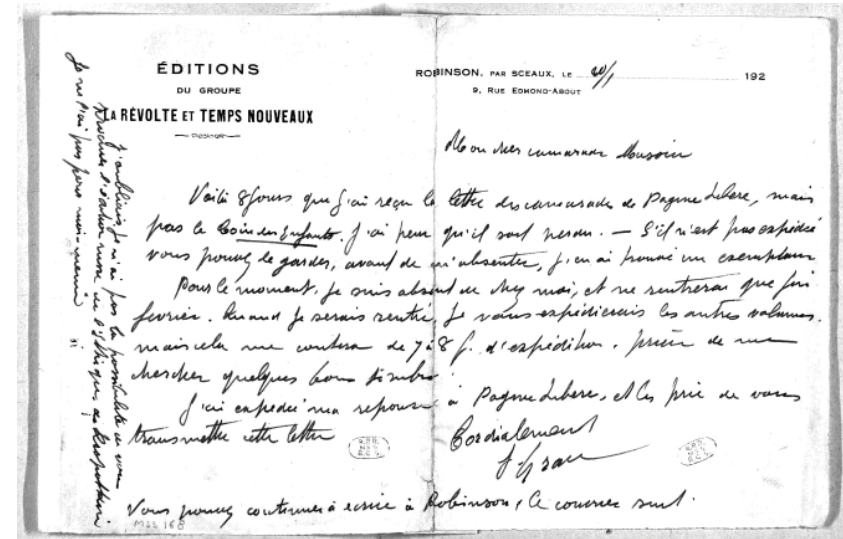 ÉDITIONS
DU GROUPE
LA RÉVOLTE ET TEMPS NOUVEAUX
ROBINSON, PAR SCEAUX, LE 20/1 192
9, RUE EDMOND-ABOUT
Mon cher camarade
Voilà 8 jours que j'ai reçu la lettre des camarades de Pagine Libere, mais
pas le Coin des Enfants. J'ai peur qu'il soit perdu. — S'il n'est pas expédié
vous pouvez le garder, avant de m'absenter, j'en ai trouvé un exemplaire
Pour le moment, je suis absent de chez moi, et ne rentrerai que fin
février. Quand je serais rentré, je vous expédierais les autres volumes.
mais cela me coutera de 7 à 8 f. d'expédition. Prière de me
chercher quelques bons timbres
J'ai expédié ma reponse à Pagine Libere, et les prie de vous
transmettre cette lettre
Cordialement
J Grave
Vous pouvez continuer à écrire à Robinson, le courrier suit.
MSS 168
J'oubliais, je n'ai pas la possibilité de vous
procurer l'Ethique de Kropotkine.
Je ne l'ai pas moi-même